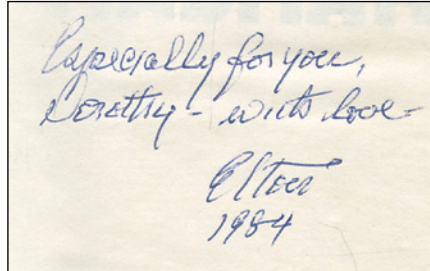 Especially for you,
Dorothy - with love
Elton
1984